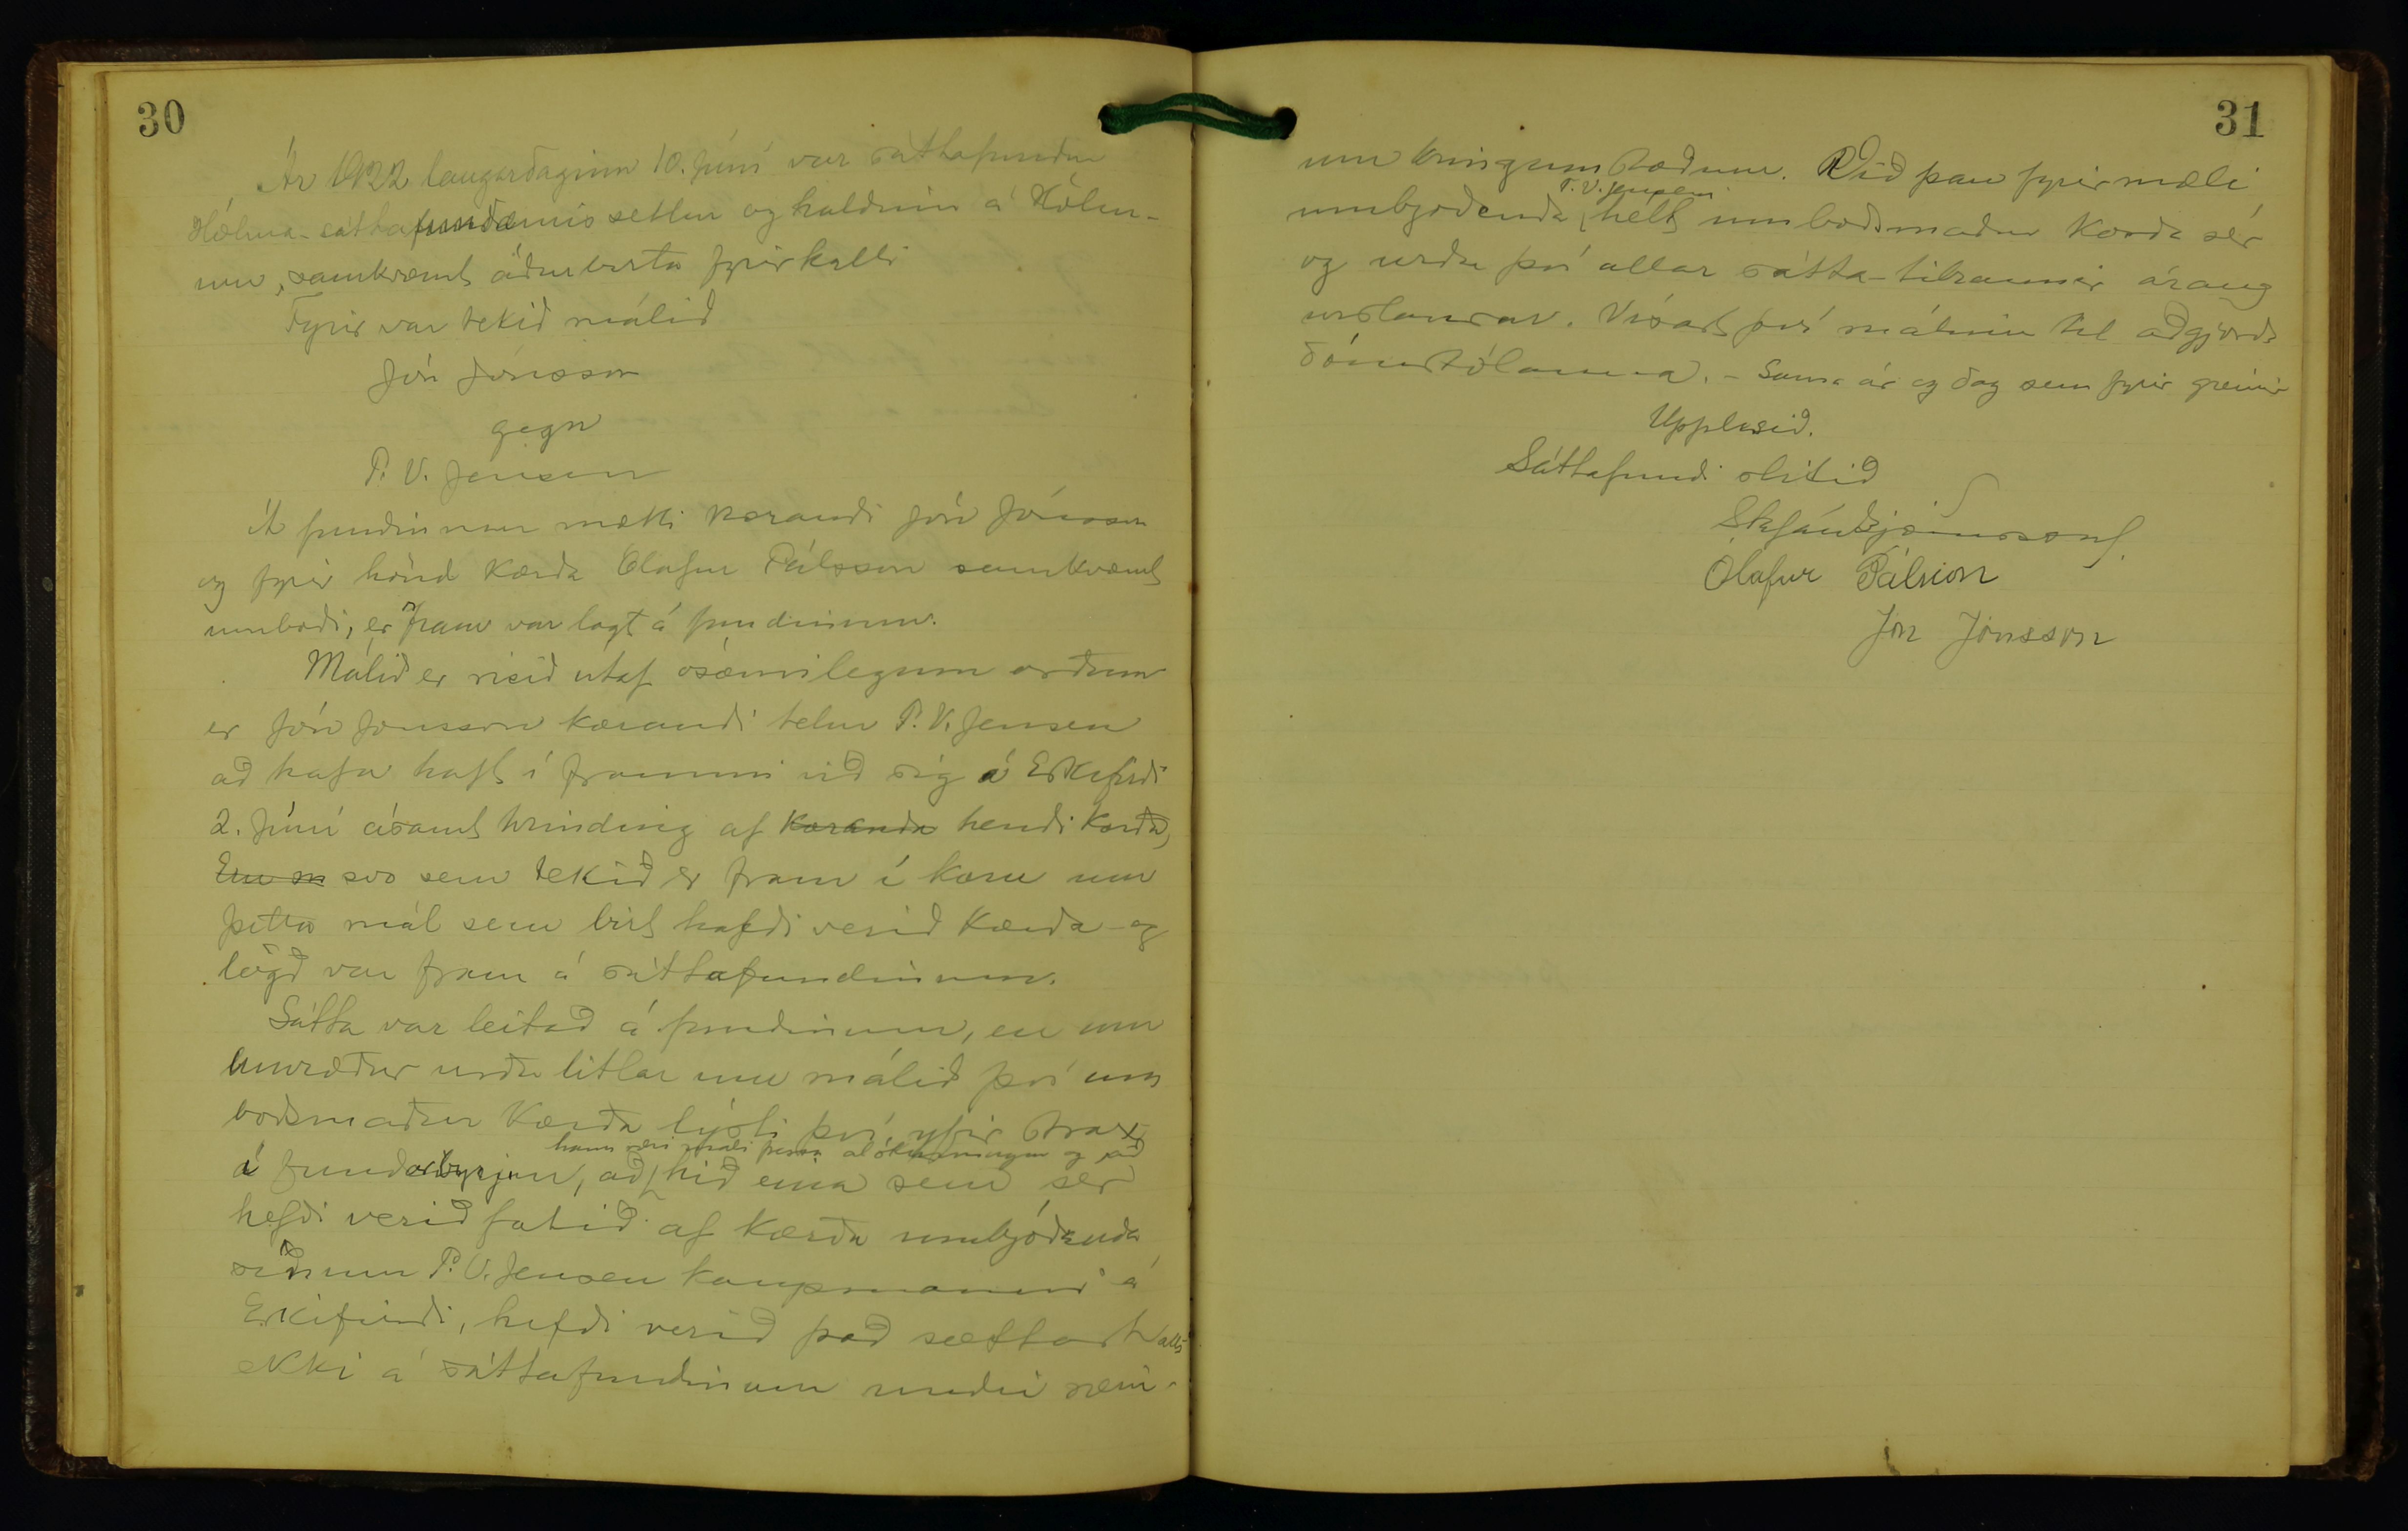 30
Ár 1922 laugardaginn 10. Júní var sáttafundur
Hólma-sáttaumdæmis settur og haldinn á Hólm-
um, samkvæmt áðurbirtu fyrirkalli
Fyrir var tekið málið
Jón Jónsson
gegn
P. V. Jensen
Á fundinum mætti kærandi Jón Jónsson
og fyrir hönd kærða Ólafur Pálsson samkvæmt
umboði, er fram var lagt á fundinum.
Málið er risið útaf ósæmilegum orðum
er Jón Jónsson kærandi telur P. V. Jensen
að hafa haft í frammi við sig á Eskifirði
2. Júní ásamt hrinding af kæranda hendi kærða,
svo sem tekið er fram í kæru um
þetta mál sem birt hafði verið kærða - og
lögð var fram á sáttafundinum.
Sátta var leitað á fundinum, en um
umræður urðu litlar um málið því um
boðsmaður kærða lýsti því yfir strax
hann væri máli þessu alókunnugur og að
á fundarbyrjun, að hið eina sem sér
hefði verið falið af kærða umbjóðanda
sínum P. V. Jensen kaupmanni á
Eskifirði, hefði verið það sættast alls
ekki á sáttafundinum undir nein-
31
um kringumstæðum. Við þau fyrirmæli
P. V. Jensens
umbjóðenda helt umboðsmaður kærða sér
og urðu því allar sátta-tilraunir árang
urslausar. Vísast því málinu til aðgjörða
dómstólanna. - Sama ár og dag sem fyrir greinir
Upplesið.
Sáttafundi slitið
Stefán Björnsson
Ólafur Pálsson
Jón Jónsson